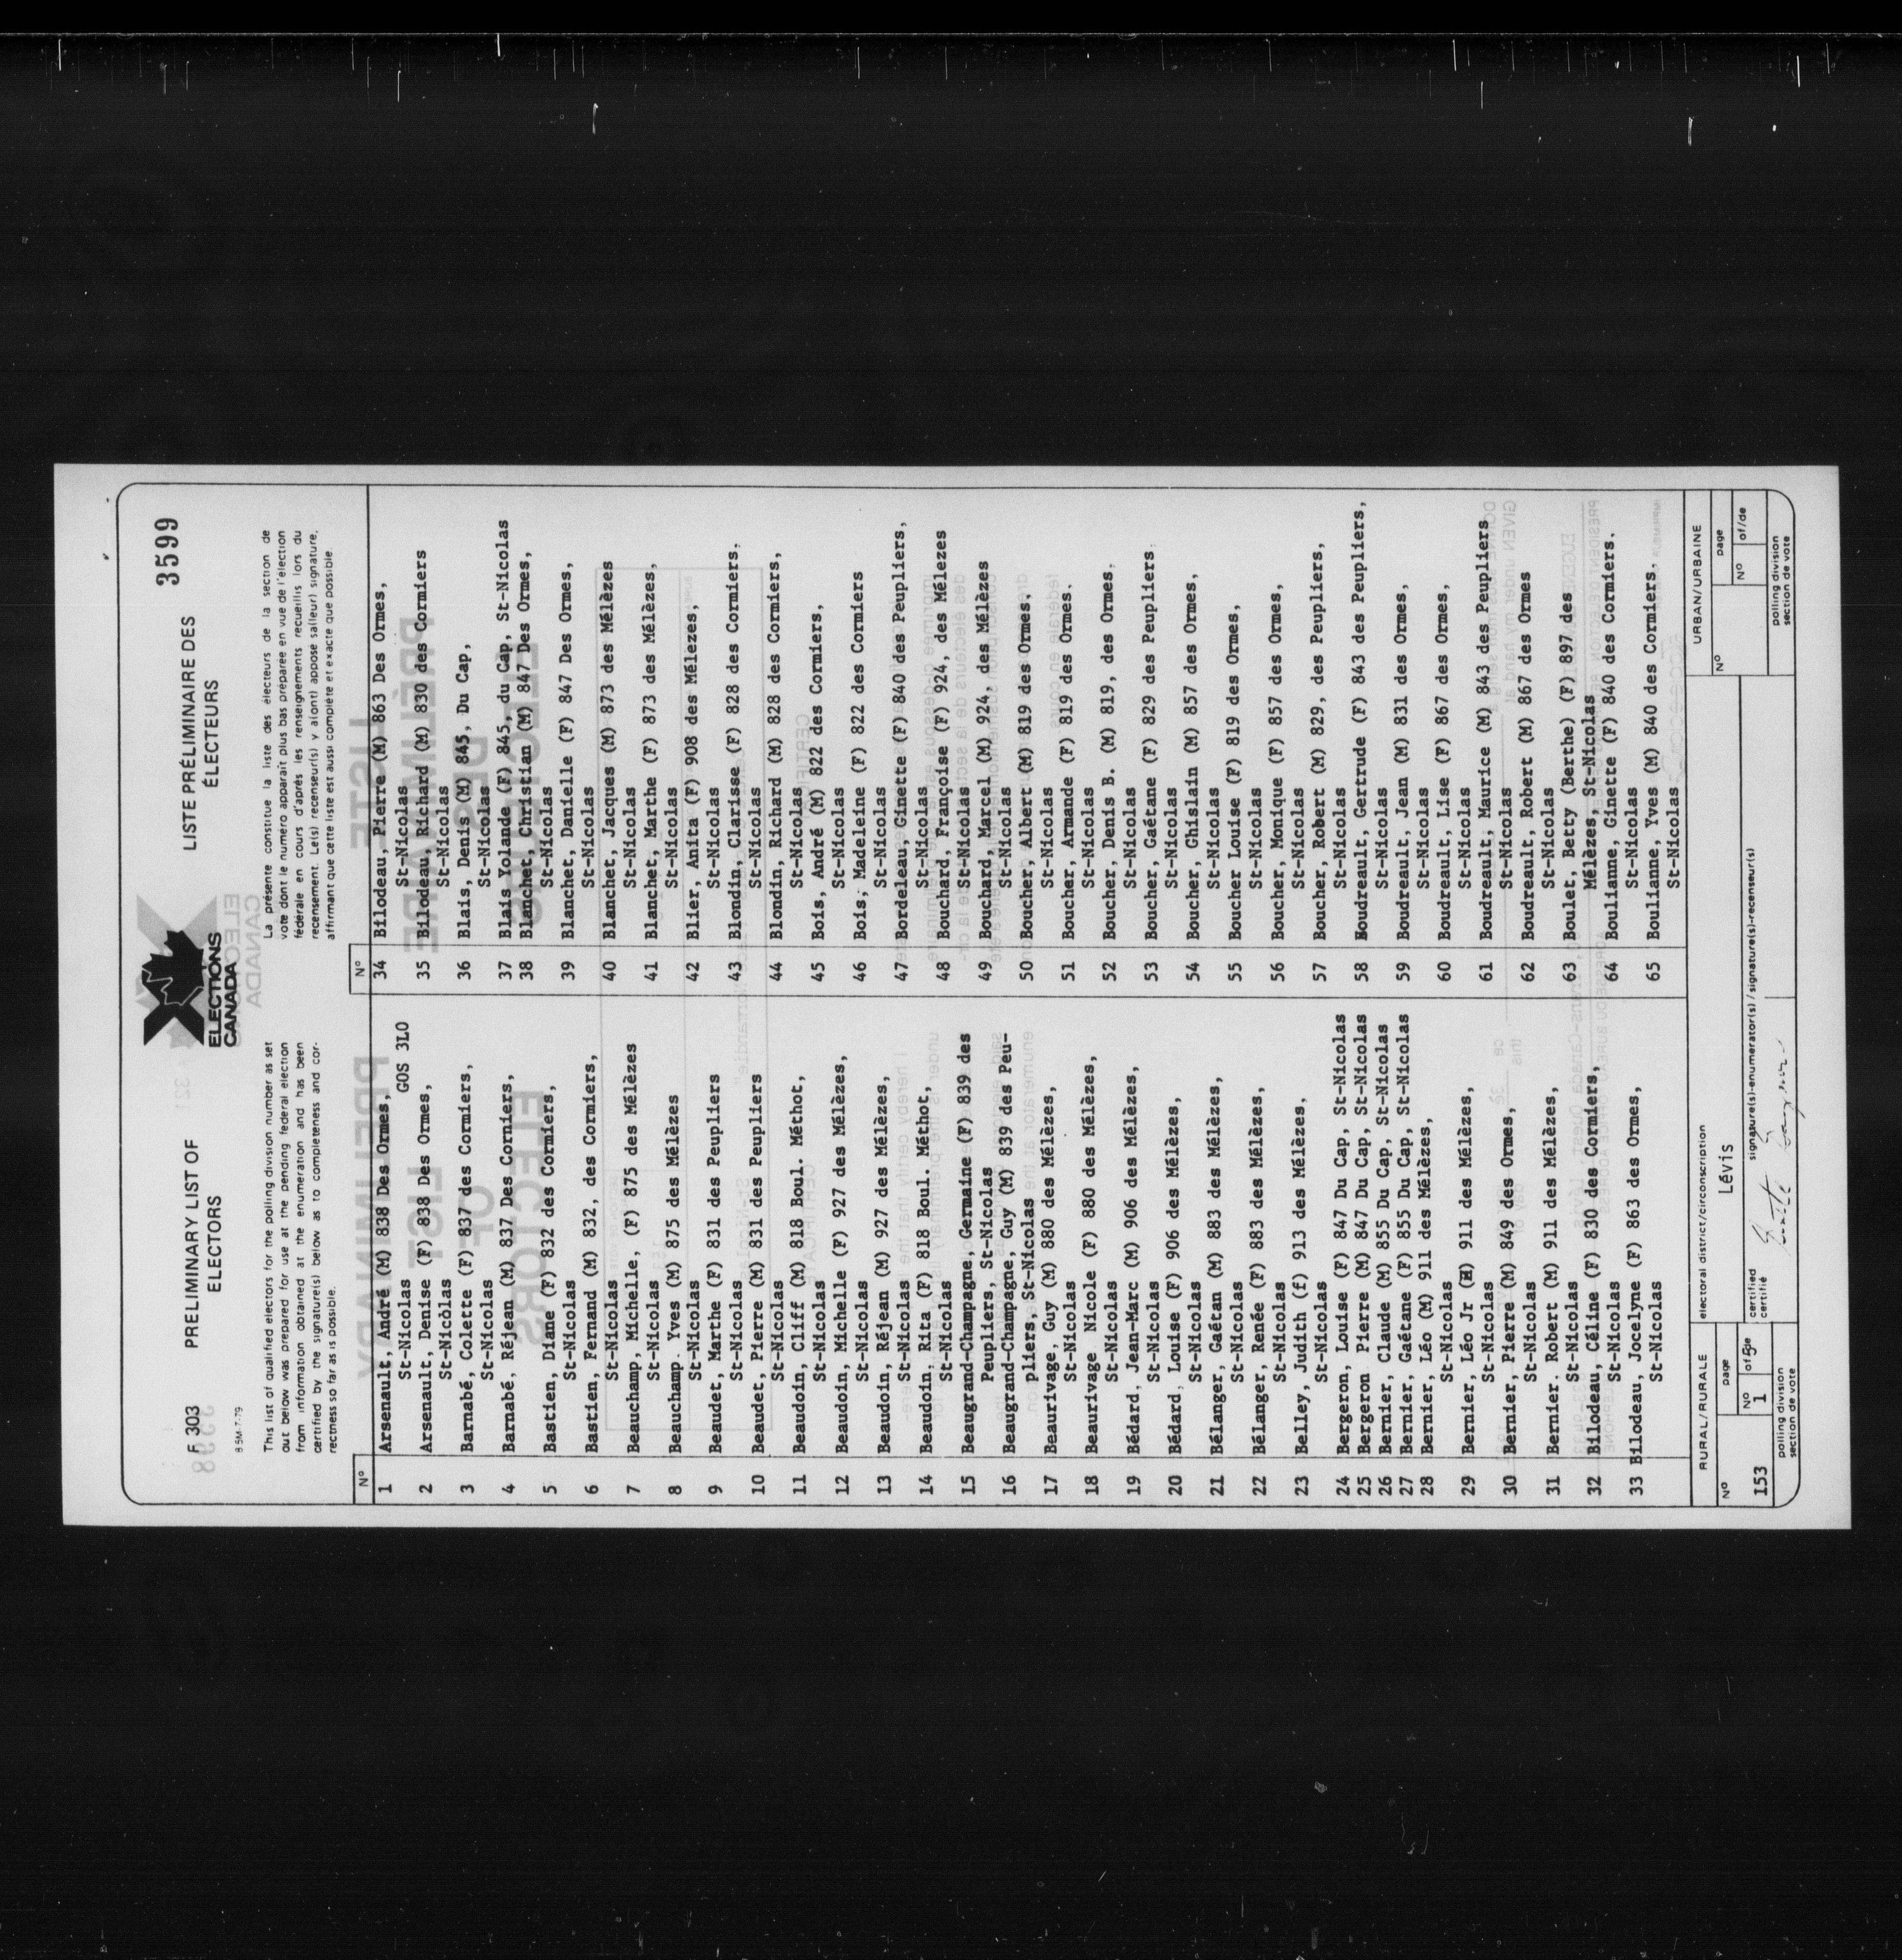 F 303
PRELIMINARY LIST OF
ELECTORS
ELECTIONS
CANADA
LISTE PRÉLIMINAIRE DES
ÉLECTEURS
3599
8 5M-7-79
This list of qualified electors for the polling division number as set
out below was prepared for use at the pending federal election
from information obtained at the enumeration and has been
certified by the signature(s) below as to completeness and cor-
rectness so far as is possible.
La présente constitue la liste des électeurs de la section de
vote dont le numéro apparaît plus bas préparée en vue de l'élection
fédérale en cours d'après les renseignements recueillis lors du
recensement. Le(s) recenseur(s) y a(ont) apposé sa(leur) signature,
affirmant que cette liste est aussi complète et exacte que possible.
Nº
1 Arsenault, André (M) 838 Des Ormes,
St-Nicolas GOS 3L0
2 Arsenault, Denise (F) 838 Des Ormes,
St-Nicòlas
3 Barnabé, Colette (F) 837 des Cormiers,
St-Nicolas
4 Barnabé, Réjean (M) 837 Des Corniers,
St-Nicolas
5 Bastien, Diane (F) 832 des Cormiers,
St-Nicolas
6 Bastien, Fernand (M) 832, des Cormiers,
St-Nicolas
7 Beauchamp, Michelle, (F) 875 des Mélèzes
St-Nicolas
8 Beauchamp. Yves (M) 875 des Mélèzes
St-Nicolas
9 Beaudet, Marthe (F) 831 des Peupliers
St-Nicolas
10 Beaudet, Pierre (M) 831 des Peupliers
St-Nicolas
11 Beaudoin, Cliff (M) 818 Boul. Méthot,
St-Nicolas
12 Beaudoin, Michelle (F) 927 des Mélèzes,
St-Nicolas
13 Beaudoin, Réjean (M) 927 des Mélèzes,
St-Nicolas
14 Beaudoin, Rita (F) 818 Boul. Méthot,
St-Nicolas
15 Beaugrand-Champagne, Germaine (F) 839 des
Peupliers, St-Nicolas
16 Beaugrand-Champagne, Guy (M) 839 des Peu-
pliers, St-Nicolas
17 Beaurivage, Guy (M) 880 des Mélèzes,
St-Nicolas
18 Beaurivage Nicole (F) 880 des Mélèzes,
St-Nicolas
19 Bédard, Jean-Marc (M) 906 des Mélèzes,
St-Nicolas
20 Bédard, Louise (F) 906 des Mélèzes,
St-Nicolas
21 Bélanger, Gaétan (M) 883 des Mélèzes,
St-Nicolas
22 Bélanger, Renée (F) 883 des Mélèzes,
St-Nicolas
23 Belley, Judith (f) 913 des Mélèzes,
St-Nicolas
24 Bergeron, Louise (F) 847 Du Cap, St-Nicolas
25 Bergeron Pierre (M) 847 Du Cap, St-Nicolas
26 Bernier, Claude (M) 855 Du Cap, St-Nicolas
27 Bernier, Gaétane (F) 855 Du Cap, St-Nicolas
28 Bernier, Léo (M) 911 des Mélèzes,
St-Nicolas
29 Bernier, Léo Jr (M) 911 des Mélèzes,
St-Nicolas
30 Bernier, Pierre (M) 849 des Ormes,
St-Nicolas
31 Bernier. Robert (M) 911 des Mélèzes,
St-Nicolas
32 Bilodeau, Céline (F) 830 des Cormiers,
St-Nicolas
33 Bilodeau, Jocelyne (F) 863 des Ormes,
St-Nicolas
Nº
34 Bilodeau, Pierre (M) 863 Des Ormes,
St-Nicolas
35 Bilodeau, Richard (M) 830 des Cormiers
St-Nicolas
36 Blais, Denis (M) 845, Du Cap,
St-Nicolas
37 Blais Yolande (F) 845, du Cap, St-Nicolas
38 Blanchet, Christian (M) 847 Des Ormes,
St-Nicolas
39 Blanchet, Danielle (F) 847 Des Ormes,
St-Nicolas
40 Blanchet, Jacques (M) 873 des Mélèzes
St-Nicolas
41 Blanchet, Marthe (F) 873 des Mélèzes,
St-Nicolas
42 Blier, Anita (F) 908 des Mélezes,
St-Nicolas
43 Blondin, Clarisse (F) 828 des Cormiers.
St-Nicolas
44 Blondin, Richard (M) 828 des Cormiers,
St-Nicolas
45 Bois, André (M) 822 des Cormiers,
St-Nicolas
46 Bois, Madeleine (F) 822 des Cormiers
St-Nicolas
47 Bordeleau, Ginette (F) 840 des Peupliers,
St-Nicolas
48 Bouchard, Françoise (F) 924, des Mélezes
St-Nicolas
49 Bouchard, Marcel (M) 924, des Mélèzes
St-Nicolas
50 Boucher, Albert (M) 819 des Ormes.
St-Nicolas
51 Boucher, Armande (F) 819 des Ormes.
St-Nicolas
52 Boucher, Denis B. (M) 819, des Ormes.
St-Nicolas
53 Boucher, Gaétane (F) 829 des Peupliers
St-Nicolas
54 Boucher, Ghislain (M) 857 des Ormes,
St-Nicolas
55 Boucher Louise (F) 819 des Ormes,
St-Nicolas
56 Boucher, Monique (F) 857 des Ormes,
St-Nicolas
57 Boucher, Robert (M) 829, des Peupliers,
St-Nicolas
58 Boudreault, Gertrude (F) 843 des Peupliers,
St-Nicolas
59 Boudreault, Jean (M) 831 des Ormes,
St-Nicolas
60 Boudreault, Lise (F) 867 des Ormes,
St-Nicolas
61 Boudreault, Maurice (M) 843 des Peupliers
St-Nicolas
62 Boudreault, Robert (M) 867 des Ormes
St-Nicolas
63 Boulet, Betty (Berthe) (F) 897 des
Mélèzes, St-Nicolas
64 Boulianne, Ginette (F) 840 des Cormiers.
St-Nicolas
65 Boulianne, Yves (M) 840 des Cormiers.
St-Nicolas
RURAL/RURALE
Nº
153
page
Nº 1 of/de
polling division
section de vote
electoral district/circonscription
Lévis
certified
certifié
signature(s)-enumerator(s) / signature(s)-recenseur(s)
URBAN/URBAINE
Nº
page
Nº of/de
polling division
section de vote